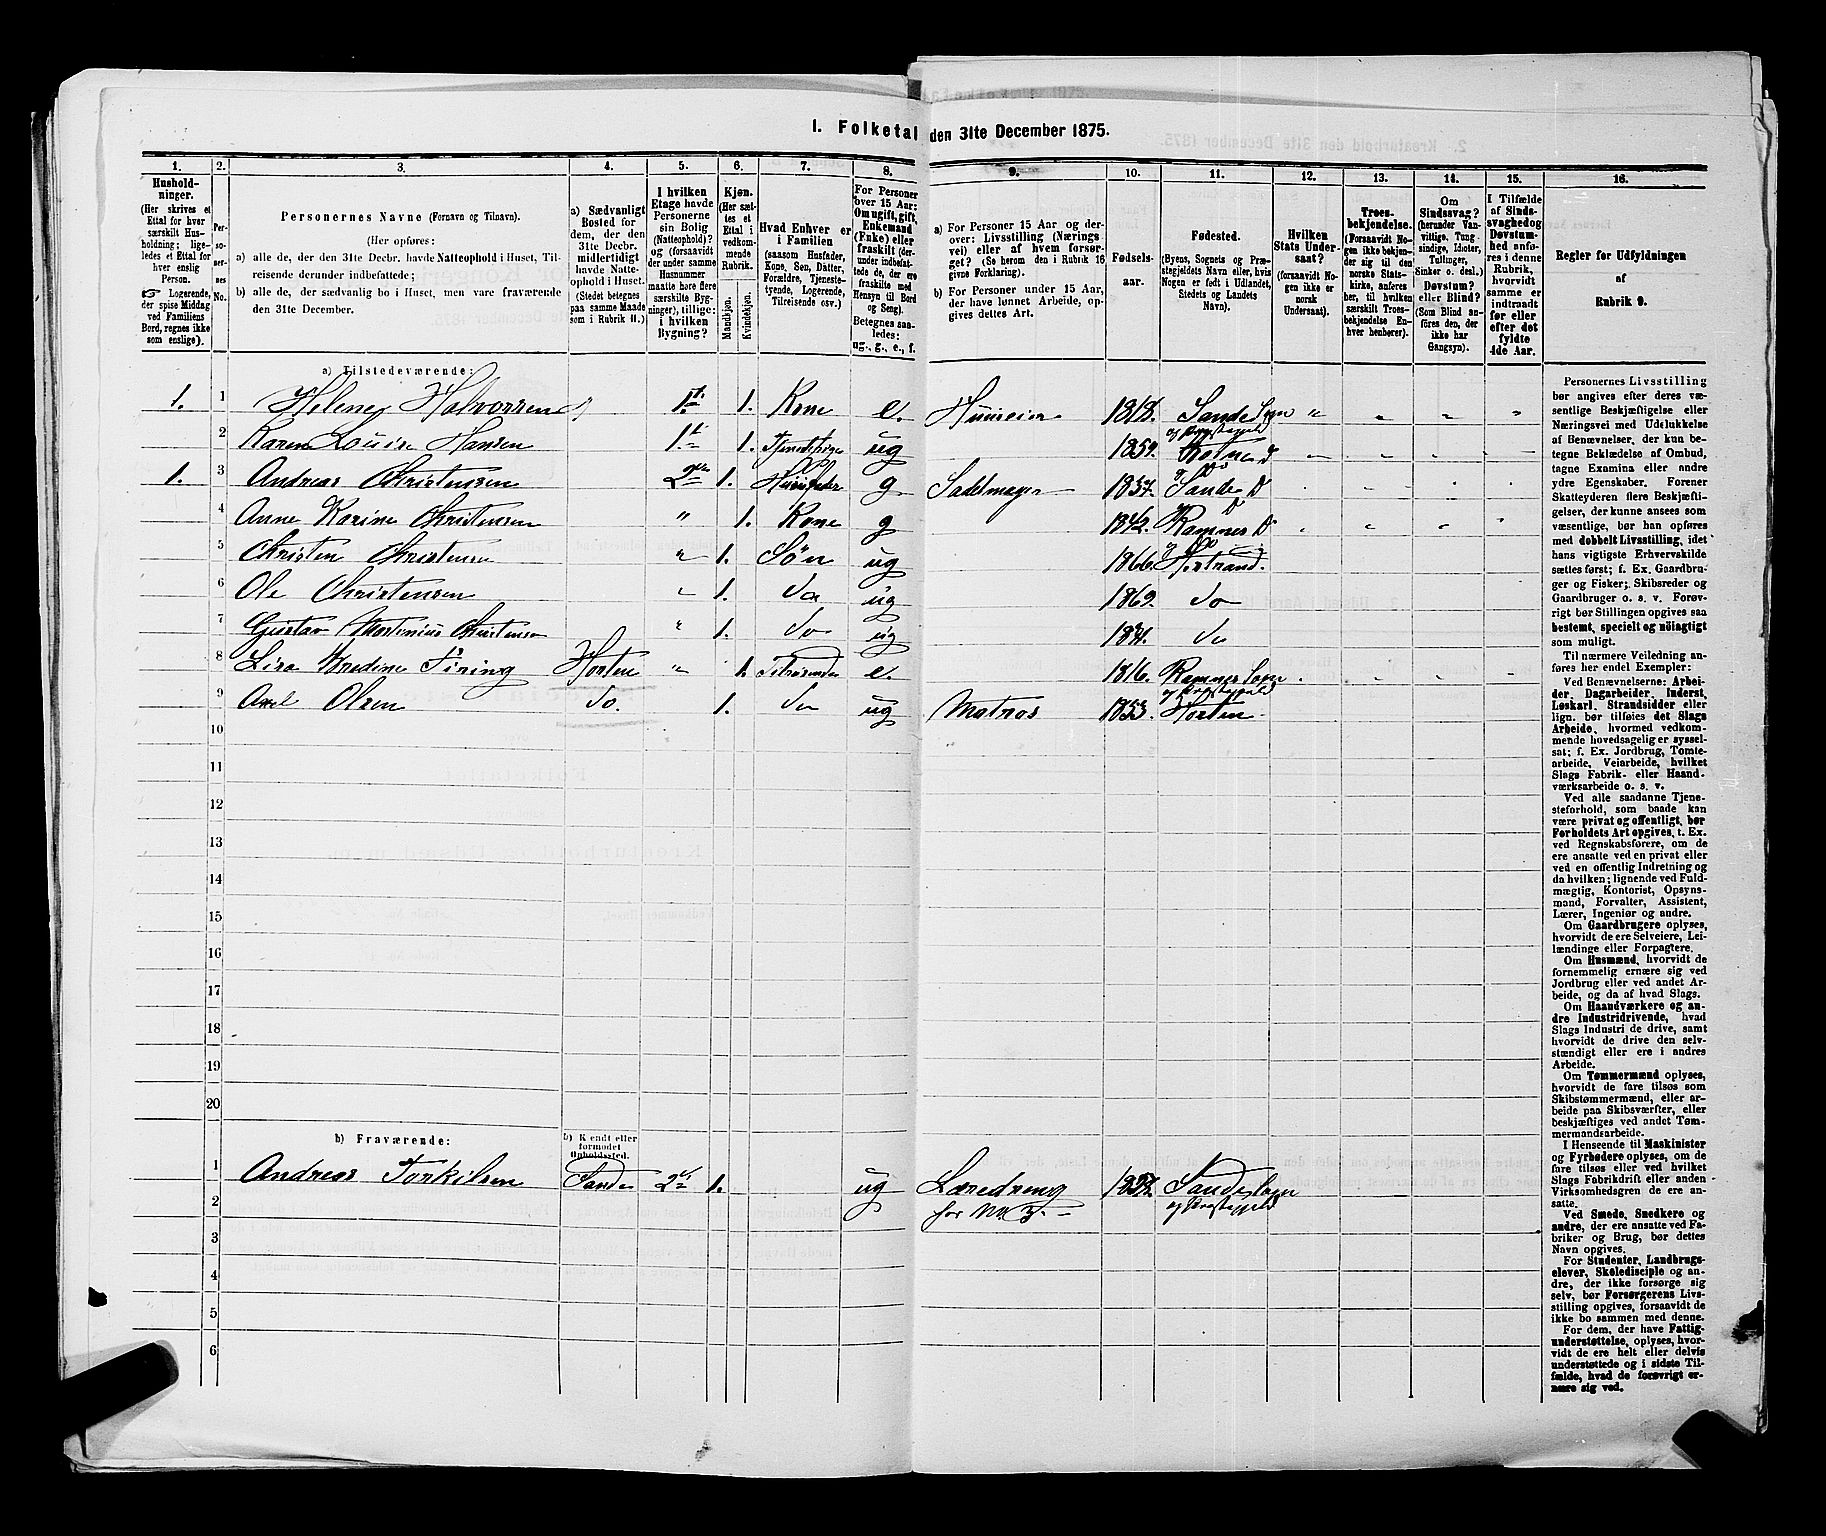 1. Folketal den 31te December 1875.
1. 2. 3. 4. 5. 6. 7. 8. 9. 10. 11. 12. 13. 14. 15. 16.
Hushold-
ninger.
(Her skrives et
Ettal for hver
særskilt Hus-
holdning; lige-
ledes et Ettal for
hver enslig
Person.
Logerende,
der spise Middag
ved Familiens
Bord, regnes ikke
som enslige).
Per-
so-
ner-
nes
No.
Personernes Navne (Fornavn og Tilnavn).
(Her opføres:
a) alle de, der den 31te Decbr. havde Natteophold i Huset, Til-
reisende derunder indbefattede;
b) alle de, der sædvanlig bo i Huset, men vare fraværende
den 31te December.
a) Sædvanligt
Bosted for
dem, der den
31te Decbr.
midlertidigt
havde Natte-
ophold i Huset.
(Stedet betegnes
paa samme Maade
som i Rubrik 11.)
I hvilken
Etage havde
Personerne
sin Bolig
(Natteophold)?
og (forsaavidt
der under samme
Husnummer
maatte høre flere
særskilte Byg-
ninger), tillige:
i hvilken
Bygning?
Kjøn.
(Her sæt-
tes et
Ettal i
vedkom-
mende
Rubrik.
Mandkjøn.
Kvindekjøn.
Hvad Enhver er
i Familien
(saasom Husfader,
Kone, Søn, Datter,
Forældre, Tjeneste-
tyende, Logerende,
Tilreisende osv.)
For Personer
over 15 Aar:
Om ugift, gift,
Enkemand
(Enke) eller
fraskilt (der-
under indbefat-
tede de, der ere
fraskilte med
Hensyn til Bord
og Seng).
Betegnes saa-
ledes:
ug., g., e., f.
a) For Personer 15 Aar og der-
over: Livsstilling (Nærings
vei) eller af hvem forsør-
get? (Se herom den i Rubrik 16
givne Forklaring).
b) For Personer under 15 Aar,
der have lønnet Arbeide, op-
gives dettes Art.
Fødsels-
aar.
Fødested.
(Byens, Sognets og Præ-
stegjeldets Navn eller, hvis
Nogen er født i Udlandet,
Stedets og Landets
Navn).
Hvilken
Stats Under-
saat?
(forsaavidt No-
gen ikke er
norsk
Undersaat).
Troes-
bekjendelse.
(Forsaavidt No-
gen ikke bekjen-
der sig til den
norske Stats-
kirke, anføres
her, til hvilken
særskilt Troes-
bekjendelse En-
hver henhører).
Om
Sindssvag?
(herunder Van-
vittige, Tung-
sindige, Idioter,
Tullinger,
Sinker o. desl.)
Døvstum?
eller Blind?
(Som Blind an-
føres den, der
ikke har
Gangsyn).
I Tilfælde
af Sinds-
svaghed og
Døvstum-
hed anfø-
res i denne
Rubrik,
hvorvidt
samme er
indtraadt
før eller
efter det
fyldte
4de Aar.
Regler for Udfyldningen
af
Rubrik 9.
a) Tilstedeværende:
1. 1 Helene Halvorsen 1. 1. Kone e. Huuseier 1818. Sande Sogn og Præstegjeld " " " "
2 Karen Louise Hansen 1. 1. ug 1857.
1. 3 Andreas Christensen 2den 1. Huusfader g Sadelmager 1837. Sande Do
4 Anne Karine Christensen " 1. Kone g 1842. Ramnes Do
5 Christen Christensen " 1. Søn ug 1866.
6 Ole Christensen " 1. do ug 1869. do
7 Gustav Martinius Christensen " 1. do ug do
8 Horten " 1. Tilreisende e. 1816. Ramnes Sogn og Præstegjeld
9 Axel Olsen do. 1. do ug Matros 1853. Horten
10
11
12
13
14
15
16
17
18
19
20
b) Fraværende:
b) Kjendt eller
formodet
Opholdssted.
1 Andreas Torkilsen Sande 2den 1. ug Læredreng Sande Sogn
2 for No 3. og Præstegjeld
3
4
5
6
Personernes Livsstilling
bør angives efter deres væ-
sentlige Beskjæftigelse eller
Næringsvei med Udelukkelse
af Benævnelser, der kun be-
tegne Beklædelse af Ombud,
tagne Examina eller andre
ydre Egenskaber. Forener
Skatteyderen flere Beskjæfti-
gelser, der kunne ansees som
væsentlige, bør han opføres
med dobbelt Livsstilling, idet
hans vigtigste Erhvervskilde
sættes først; f. Ex. Gaardbru-
ger og Fisker; Skibsreder og
Gaardbruger o. s. v. Forøv-
rigt bør Stillingen opgives saa
bestemt, specielt og nöiagtigt
som muligt.
Til nærmere Veiledning an-
føres her endel Exempler:
Ved Benævnelserne: Arbei-
der, Dagarbeider, Inderst,
Løskarl, Strandsidder eller
lign. bør tilføies det Slags
Arbeide, hvormed vedkom-
mende hovedsagelig er syssel-
sat; f. Ex. Jordbrug, Tomte-
arbeide, Veiarbeide, hvilket
Slags Fabrik- eller Haand-
værksarbeide o. s. v.
Ved alle saadanne Tjene-
steforhold, som baade kan
være privat og offentligt, bør
Forholdets Art opgives, t. Ex.
ved Regnskabsførere, om de
ere ansatte ved en privat eller
ved en offentlig Indretning og
da hvilken; lignende ved Fuld-
mægtig, Kontorist, Opsyns-
mand, Forvalter, Assistent,
Lærer, Ingeniør og andre.
Om Gaardbrugere oplyses,
hvorvidt de ere Selveiere, Lei-
lændinge eller Forpagtere.
Om Husmænd, hvorvidt de
fornemmelig ernære sig ved
Jordbrug eller ved andet Ar-
beide, og da af hvad Slags.
Om Haandværkere og an-
dre Industridrivende, hvad
Slags Industri de drive, samt
hvorvidt de drive den selv-
stændigt eller ere i andres
Arbeide.
Om Tømmermænd oplyses,
hvorvidt de fare tilsøs som
Skibstømmermænd, eller ar-
beide paa Skibsværfter, eller
beskjæftiges ved andet Tøm-
mermandsarbeide.
I Henseende til Maskinister
og Fyrbødere oplyses, om de
fare tilsøs eller ved hvilket
Slags Fabrikdrift eller anden
Virksomhedsgren de ere an-
satte.
Ved Smede, Snedkere og
andre, der ere ansatte ved Fa-
briker og Brug, bør dettes
Navn opgives.
For Studenter, Landbrugs-
elever, Skoledisciple og an-
dre, der ikke forsørge sig
selv, bør Forsørgerens Livs-
stilling opgives, forsaavidt de
ikke bo sammen med denne.
For dem, der have Fattig-
understøttelse, oplyses, hvor-
vidt de ere helt eller delvis
understøttede og i sidste Til-
fælde, hvad de forøvrigt er-
nære sig ved.